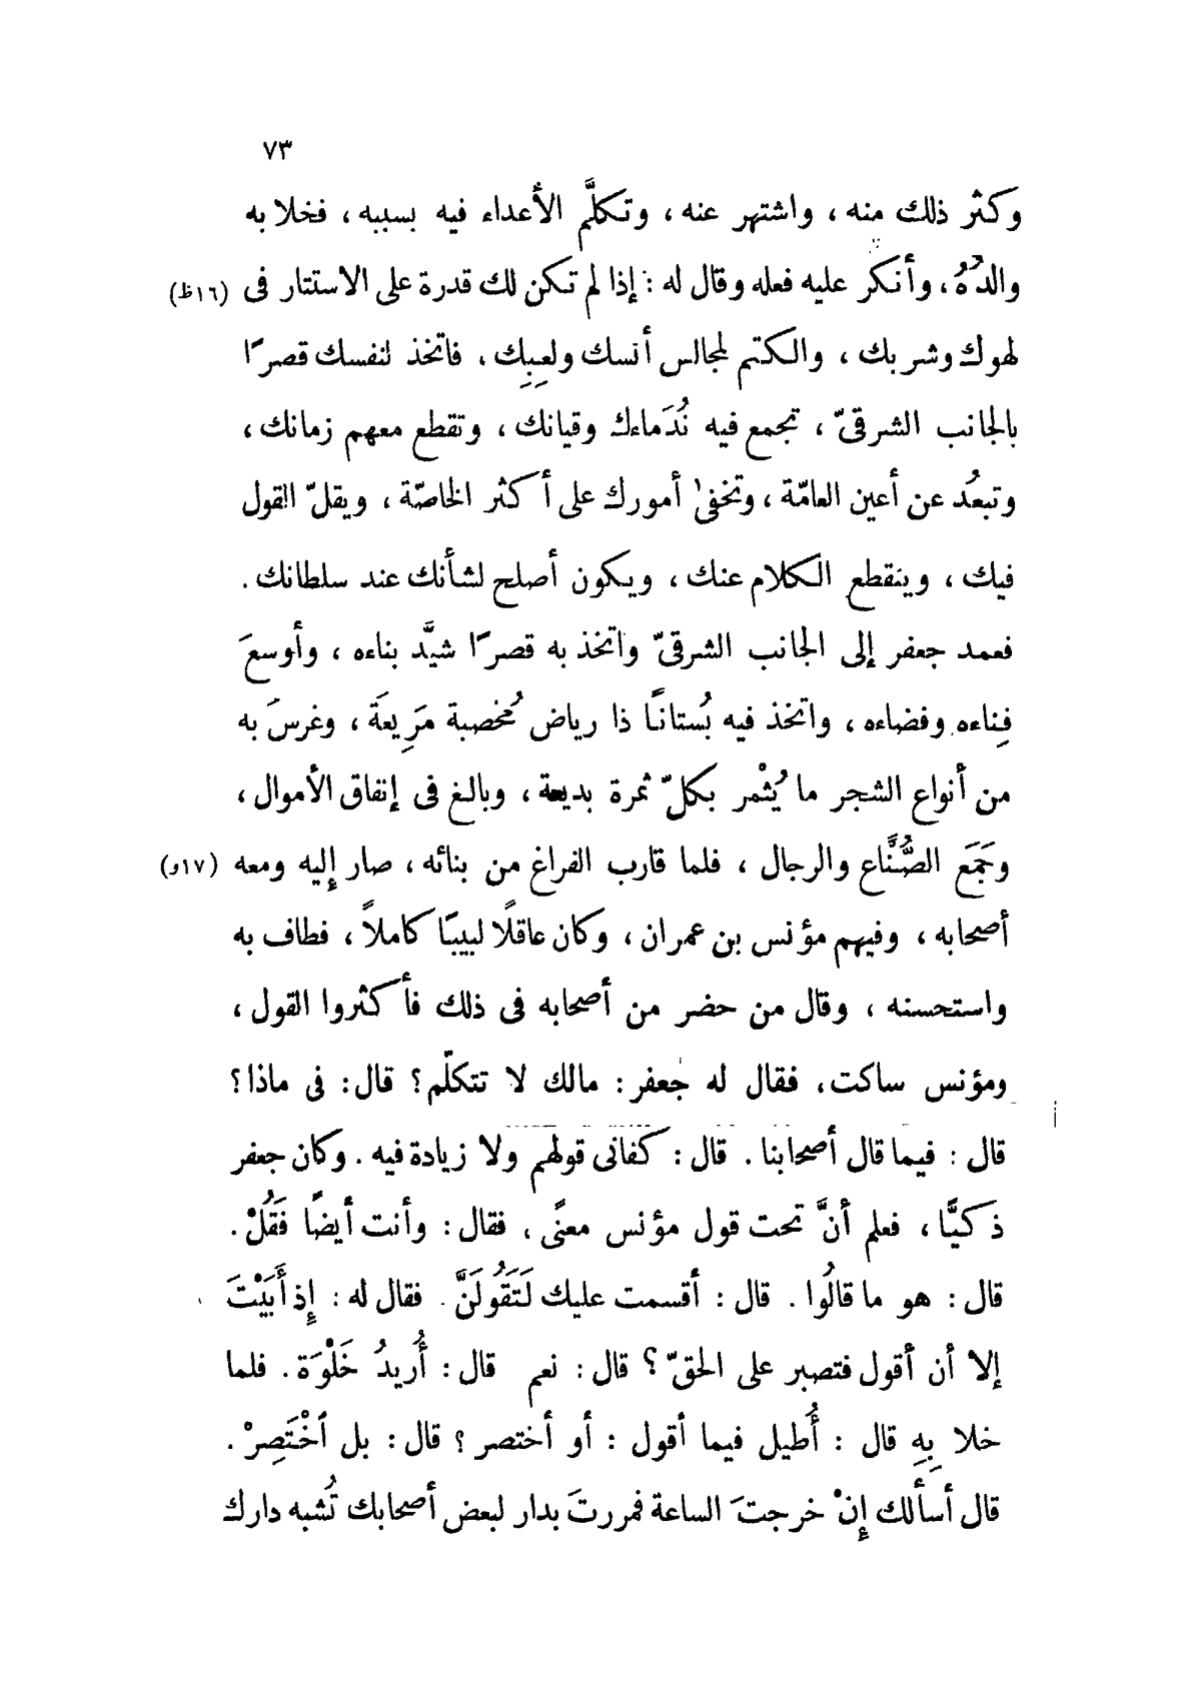 ٧٣
وكثر ذلك منه ، واشتهر عنه ، وتكلَّم الأعداء فيه بسببه ، فخلا به
والدُهُ ، وأنكر عليه فعله وقال له : إذا لم تكن لك قدرة على الاستتار فى (١٦ظ)
لهوك وشربك ، والكتم لمجالس أنسك ولعِبِك ، فاتخذ لنفسك قصرًا
بالجانب الشرقىّ ، تجمع فيه نُدَماءك وقيانك ، وتقطع معهم زمانك ،
وتبعُد عن أعين العامّة ، وتخفى أمورك على أكثر الخاصّة ، ويقلّ القول
فيك ، وينقطع الكلام عنك ، ويكون أصلح لشأنك عند سلطانك .
فعمد جعفر إلى الجانب الشرقىّ واتخذ به قصرًا شيَّد بناءه ، وأوسعَ
فِناءه وفضاءه ، واتخذ فيه بُستانًا ذا رياض مُخصبة مَرِيعَة ، وغرسَ به
من أنواع الشجر ما يُثْمر بكلّ ثمرة بديعة ، وبالغ فى إنفاق الأموال ،
وجَمَع الصُّنَّاع والرجال ، فلما قارب الفراغ من بنائه ، صار إليه ومعه (١٧و)
أصحابه ، وفيهم مؤنس بن عمران ، وكان عاقلًا لبيبًا كاملاً ، فطاف به
واستحسنه ، وقال من حضر من أصحابه فى ذلك فأكثروا القول ،
ومؤنس ساكت ، فقال له جعفر : مالك لا تتكلّم ؟ قال : فى ماذا ؟
قال : فيما قال أصحابنا . قال : كفانى قولهم ولا زيادة فيه . وكان جعفر
ذكيًّا ، فعلم أنَّ تحت قول مؤنس معنًى ، فقال : وأنت أيضًا فَقُلْ .
قال : هو ما قالُوا . قال : أقسمت عليك لَتَقُولَنَّ . فقال له : إذ أَبَيْتَ
إلا أن أقول فتصبر على الحقّ ؟ قال : نعم قال : أُريدُ خَلْوَة . فلما
خلا بِهِ قال : أُطيل فيما أقول : أو أختصر ؟ قال : بل ٱخْتَصِرْ .
قال أسألك إنْ خرجتَ الساعة فمررتَ بدار لبعض أصحابك تُشبه دارك